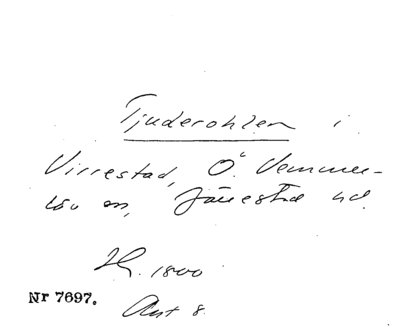 Tjuderohlen i
Virrestad, Ö. Vemmer-
löv sn, Järrestad hd.
H. 1800
Nr 7697.
Ant 8.